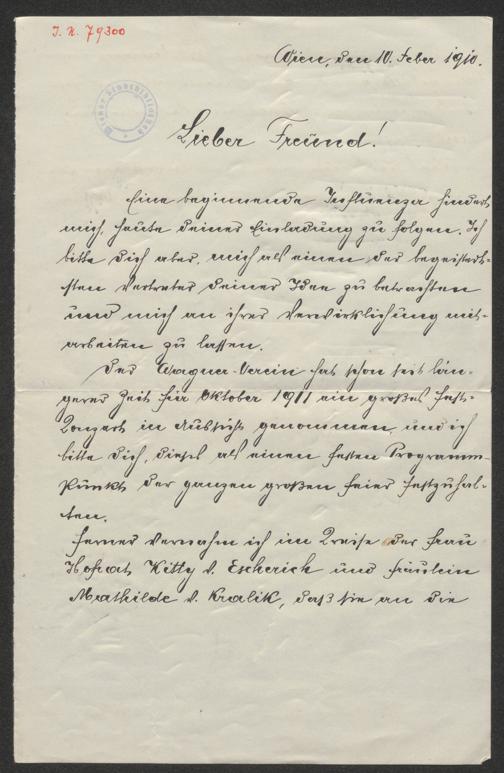 I. N. 79300
Wiener Stadtbibliothek
Wien, den 10. Feber 1910.
Lieber Freund!
Eine beginnende Influenza hindert
mich, heute deiner Einladung zu folgen. Ich
bitte dich aber, mich als einen der begeistert-
sten Vertreter deiner Idee zu betrachten
und mich an ihrer Verwirklichung mit-
arbeiten zu lassen.
Der Wagner-Verein hat schon seit län-
gerer Zeit für Oktober 1911 ein großes Fest-
Konzert in Aussicht genommen, und ich
bitte dich, dieses als einen festen Programm-
punkt der ganzen großen Feier festzuhal-
ten.
Ferner vernahm ich im Kreise der Frau
Hofrat Kitty v. Escherich und Fräulein
Mathilde v. Kralik, daß sie an die